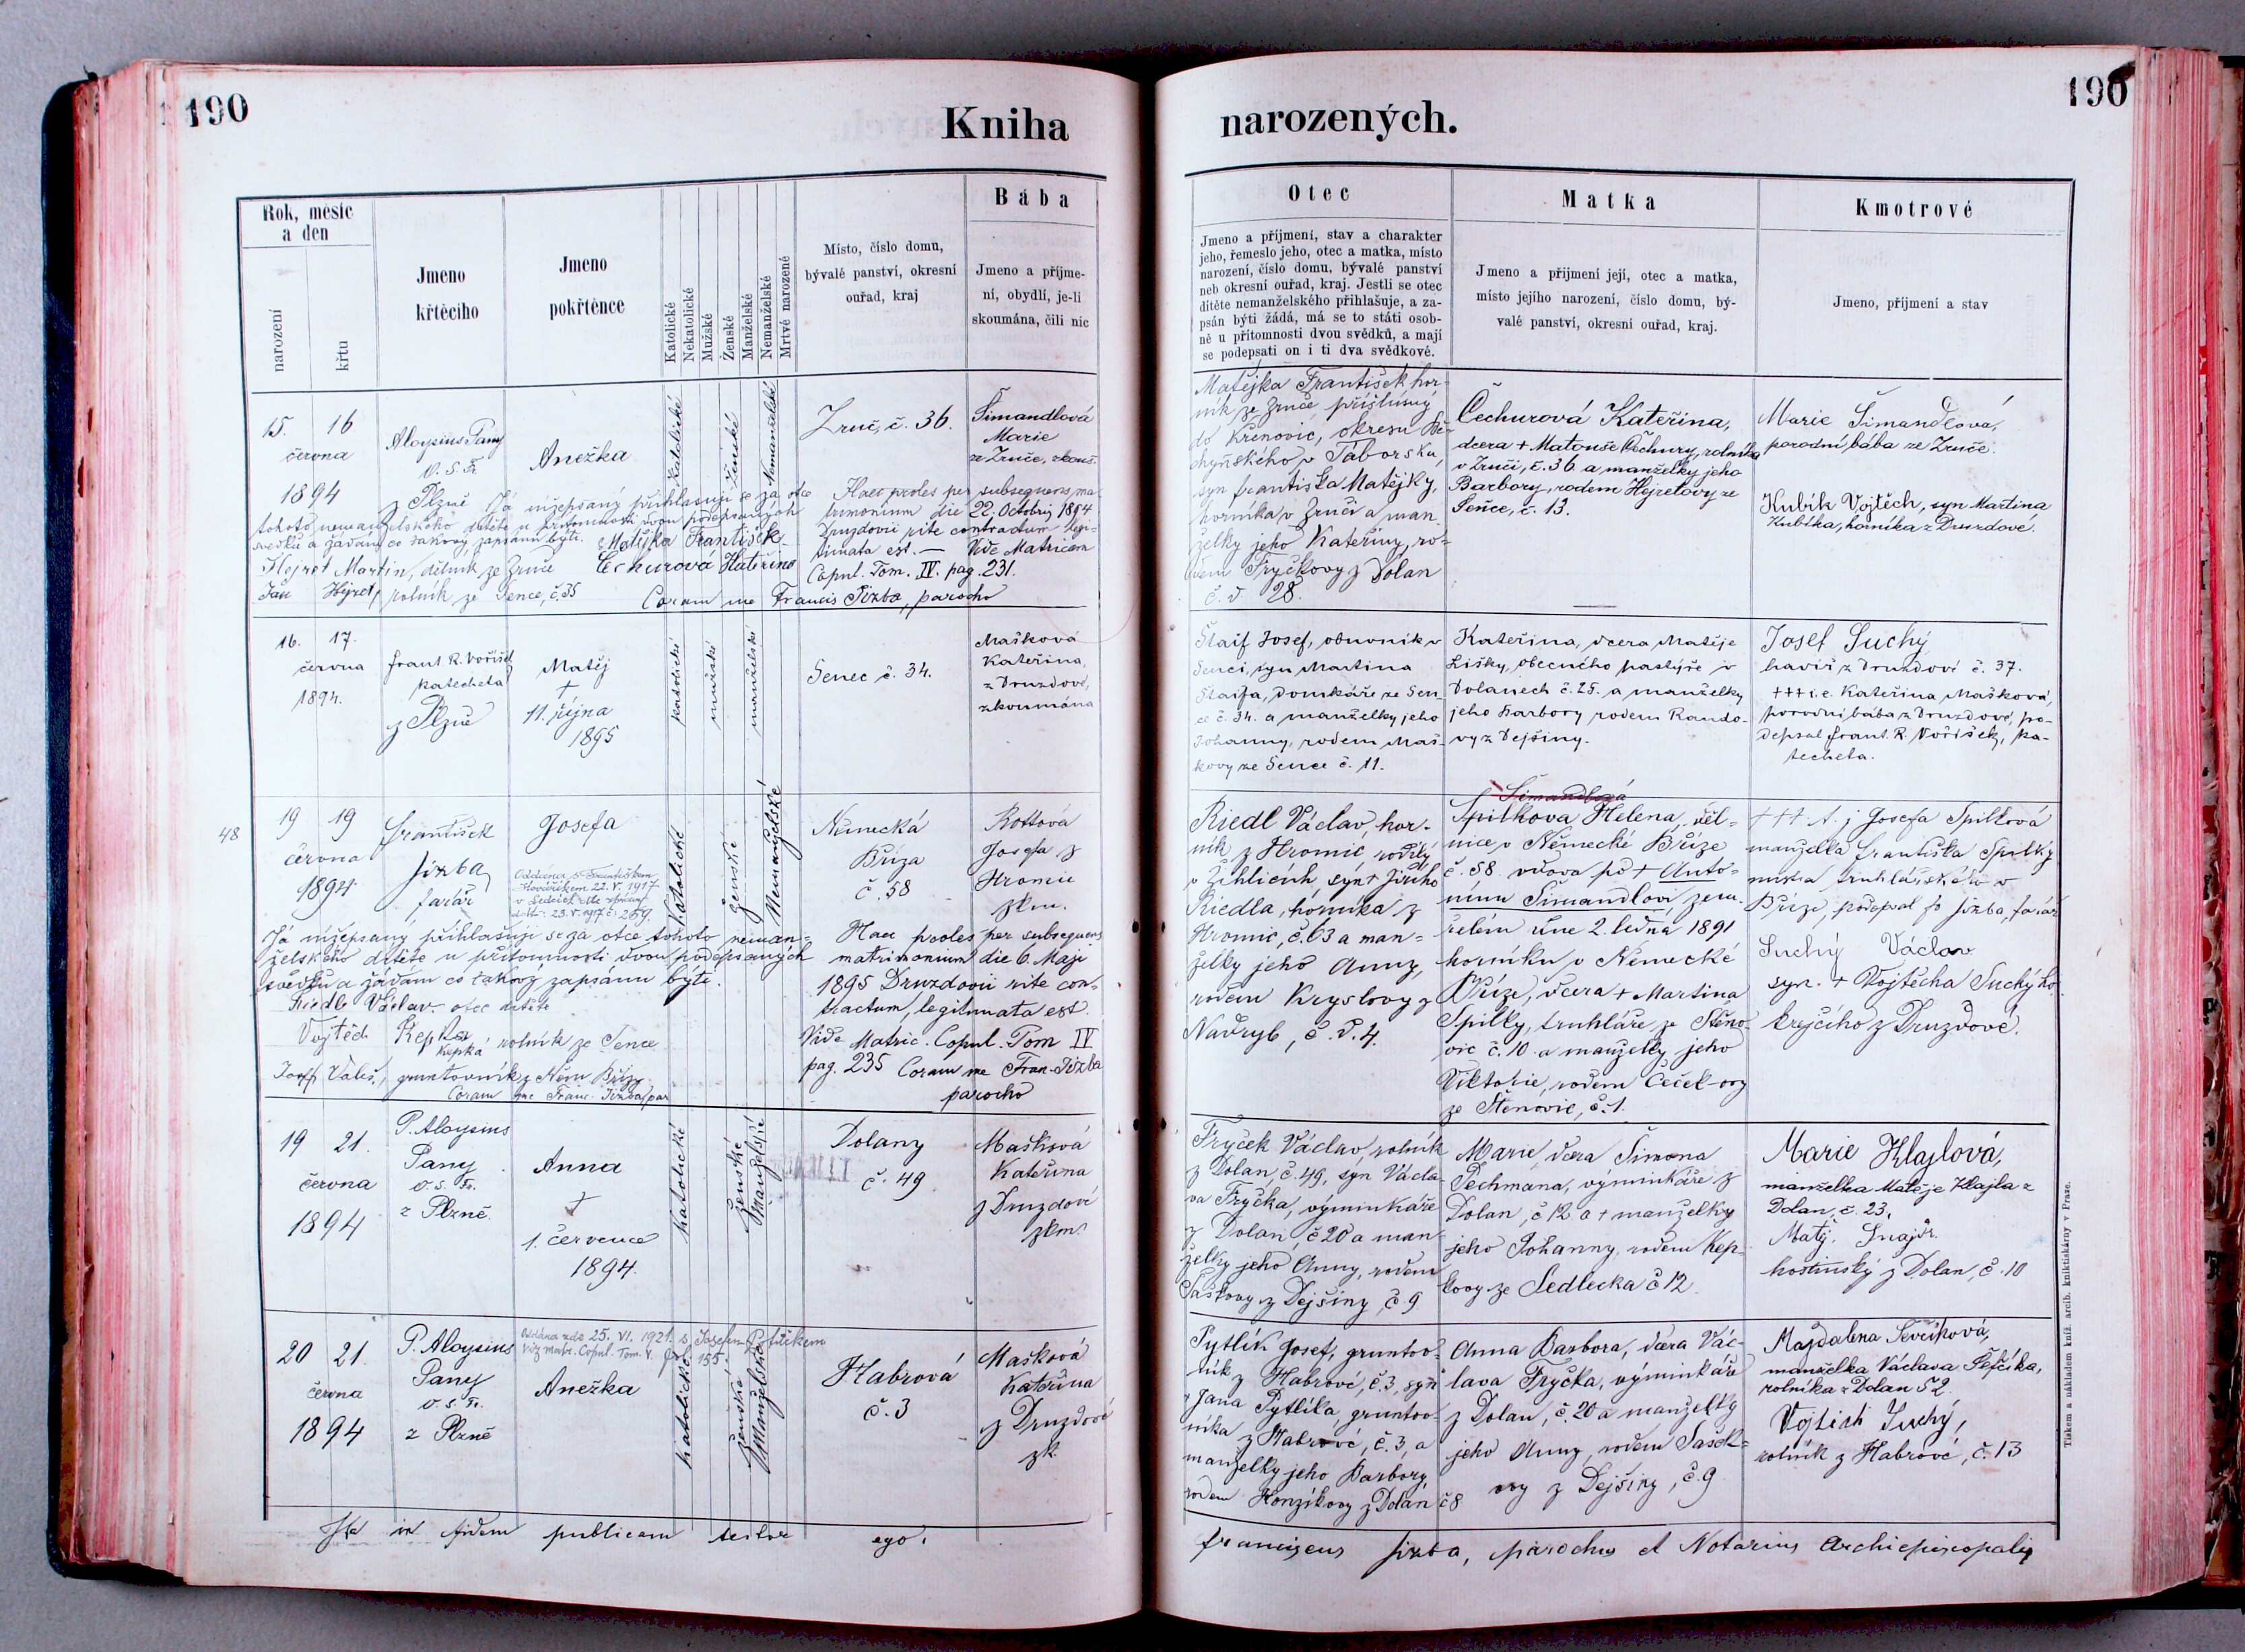 190
Kniha
Rok, měsíc
a den
narození
křtu
Jmeno
křtěcího
Jmeno
pokřtěnce
Katolické
Nekatolické
Mužské
Ženské
Manželské
Nemanželské
Mrtvé narozené
Místo, číslo domu,
bývalé panství, okresní
ouřad, kraj
Bába
Jmeno a příjme-
ní, obydlí, je-li
skoumána, čili nic
15. 16
června
1894
Aloysius Pany
O. S. Fr.
z Plzně
Anežka
katolické
ženské
Nemanželské
Zruč, č. 36.
Šimandlová
Marie
ze Zruče, zkouš.
Já nížepsaný přihlašuji se za otce
tohoto nemanželského dítěte u přítomnosti dvou podepsaných
svědků a žádám co takový zapsánu býti. Matějka František
Hejret Martin, dělník ze Zruče Čechurová Kateřina
Jan Hejret, rolník ze Sence, č. 35
Haec proles per subsequens ma-
trimonium die 22. Octobris 1894
Druzdovii rite contractum legi-
timata est. — Vide Matricam
Copul. Tom. IV. pag. 231.
Coram me Francis Jizba, parocho
16. 17.
června
1894.
Frant. R. Voříšek
katecheta
z Plzně
Matěj
†
11. října
1895
katolické
mužské
manželské
Senec č. 34.
Mašková
Kateřina,
z Druzdové,
zkoumána
48
19 19
června
1894
František
Jizba
farář
Josefa
Oddána s Františkem
22. V. 1917
katolické
ženské
Nemanželské
Německá
Bříza
č. 58
Rottová
Josefa z
Hromic
zkm.
Já nížepsaný přihlašuji se za otce tohoto neman-
želského dítěte u přítomnosti dvou podepsaných
svědků a žádám co takový zapsánu býti.
Riedl Václav otec dítěte
Vojtěch Kepka rolník ze Sence
Kepka
Josef Valeš, gruntovník z Něm. Břízy
Coram me Franc. Jizba par
Haec proles per subsequens
matrimonium die 6. Maji
1895 Druzdovii rite con-
tractum, legitimata est.
Vide Matric. Copul. Tom IV
pag. 235 Coram me Fran. Jizba
parocho
19 21.
června
1894
P. Aloysius
Pany
O. S. Fr.
z Plzně.
Anna
†
1. července
1894.
katolické
ženské
manželské
Dolany
č. 49
Mašková
Kateřina
z Druzdové
zkm.
20 21.
června
1894
P. Aloysius
Pany
O. S. Fr.
z Plzně
Oddána zde 25. VI. 1921. s Josefem
Viz matr. Copul. Tom. V. fol. 155.
Anežka
katolické
ženské
Manželské
Habrová
č. 3
Mašková
Kateřina
z Druzdové
zk.
Ita in fidem publicam testor ego:
narozených.
190
Otec
Jmeno a příjmení, stav a charakter
jeho, řemeslo jeho, otec a matka, místo
narození, číslo domu, bývalé panství
neb okresní ouřad, kraj. Jestli se otec
dítěte nemanželského přihlašuje, a za-
psán býti žádá, má se to státi osob-
ně u přítomnosti dvou svědků, a mají
se podepsati on i ti dva svědkové.
Matka
Jmeno a přijmení její, otec a matka,
místo jejího narození, číslo domu, bý-
valé panství, okresní ouřad, kraj.
Kmotrové
Jmeno, příjmení a stav
Matějka František hor-
ník ze Zruče, příslušný
do Křenovic, okresu Be-
chyňského v Táborsku,
syn Františka Matějky,
horníka v Zruči a man-
želky jeho Kateřiny, ro-
dem Fryčkovy z Dolan
č. d. 28.
Čechurová Kateřina,
dcera † Matouše Čechury, rolníka
v Zruči, č. 36 a manželky jeho
Barbory, rodem Hejretovy ze
Senče, č. 13.
Marie Šimandlová,
porodní bába ze Zruče.
Kubík Vojtěch, syn Martina
Kubíka, horníka z Druzdové.
Štaif Josef, obuvník v
Senci, syn Martina
Štaifa, domkáře ze Sen-
ce č. 34. a manželky jeho
Johanny, rodem Maš-
kovy ze Sence č. 11.
Kateřina, dcera Matěje
Lišky, obecného pastýře v
Dolanech č. 25. a manželky
jeho Barbory rodem Rando-
vy z Dejšiny.
Josef Suchý
havíř z Druzdové č. 37.
††† i. e. Kateřina Mašková,
porodní bába z Druzdové, po-
depsal Frant. R. Voříšek, ka-
techeta.
Riedl Václav, hor-
ník z Hromic, rodilý
v Žihlicích, syn † Jiřího
Riedla, horníka z
Hromic, č. 63 a man-
želky jeho Anny,
rodem Kryslovy z
Nadryb, č. d. 4.
Šimandlová
Spilkova Helena, děl-
nice v Německé Bříze
č. 58. vdova po † Anto-
nínu Šimandlovi zem-
řelém dne 2. ledna 1891
horníku v Německé
Bříze, dcera † Martina
Spilky, truhláře ze Štěno-
vic č. 10. a manželky jeho
Viktorie, rodem Čeček-ovy
ze Štěnovic, č. 1.
††† t. j. Josefa Spilková
manželka Františka Spilky
mistra truhlářského v
Bříze, podepsal Jizba, farář
Suchý Václav
syn. † Vojtěcha Suchýho
krejčího z Druzdové.
Fryček Václav, rolník
z Dolan, č. 49, syn Václa-
va Fryčka, výminkáře
z Dolan, č. 20 a man-
želky jeho Anny, rodem
Saškovy z Dejšiny č. 9
Marie dcera Šimona
Pechmana, výminkáře z
Dolan, č. 12 a † manželky
jeho Johanny, rodem Kep-
kovy ze Sedlecka č. 12.
Marie Klajlová,
manželka Matěje Klajla z
Dolan, č. 23,
Matj. Šnajdr.
hostinský z Dolan, č. 10
Pytlík Josef, gruntov-
ník z Habrové, č. 3, syn
Jana Pytlíka, gruntov-
níka z Habrové, č. 3, a
manželky jeho Barbory,
rodem Honzíkovy z Dolan č. 8
Anna Barbora, dcera Vác-
lava Fryčka, výminkáře
z Dolan, č. 20 a manželky
jeho Anny, rodem Sašek-
ovy z Dejšiny, č. 9
Majdalena Ševčíková,
manželka Václava Šefčíka,
rolníka z Dolan 52.
Vojtěch Suchý,
rolník z Habrové, č. 13
Franciscus Jizba, parochus et Notarius Archiepiscopalis
Tiskem a nákladem kníž. arcib. knihtiskárny v Praze.